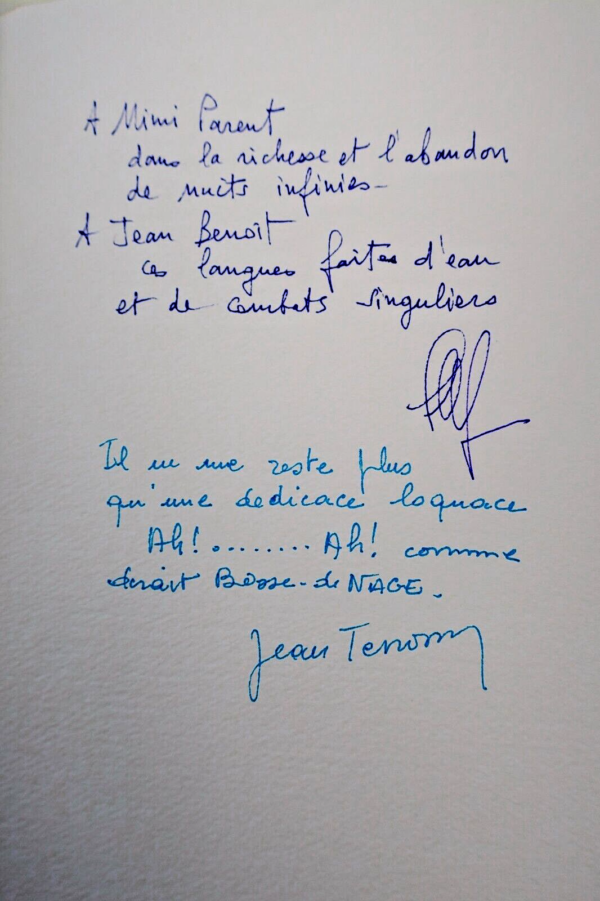 A Mimi Parent
dans la richesse et l'abandon
de nuits infinies-
A Jean Benoît
ces langues faites d'eau
et de combats singuliers
Il ne me reste plus
qu'une dedicace loquace
Ah!........Ah! comme
dirait Bosse-de NAGE.
Jean Terrossian